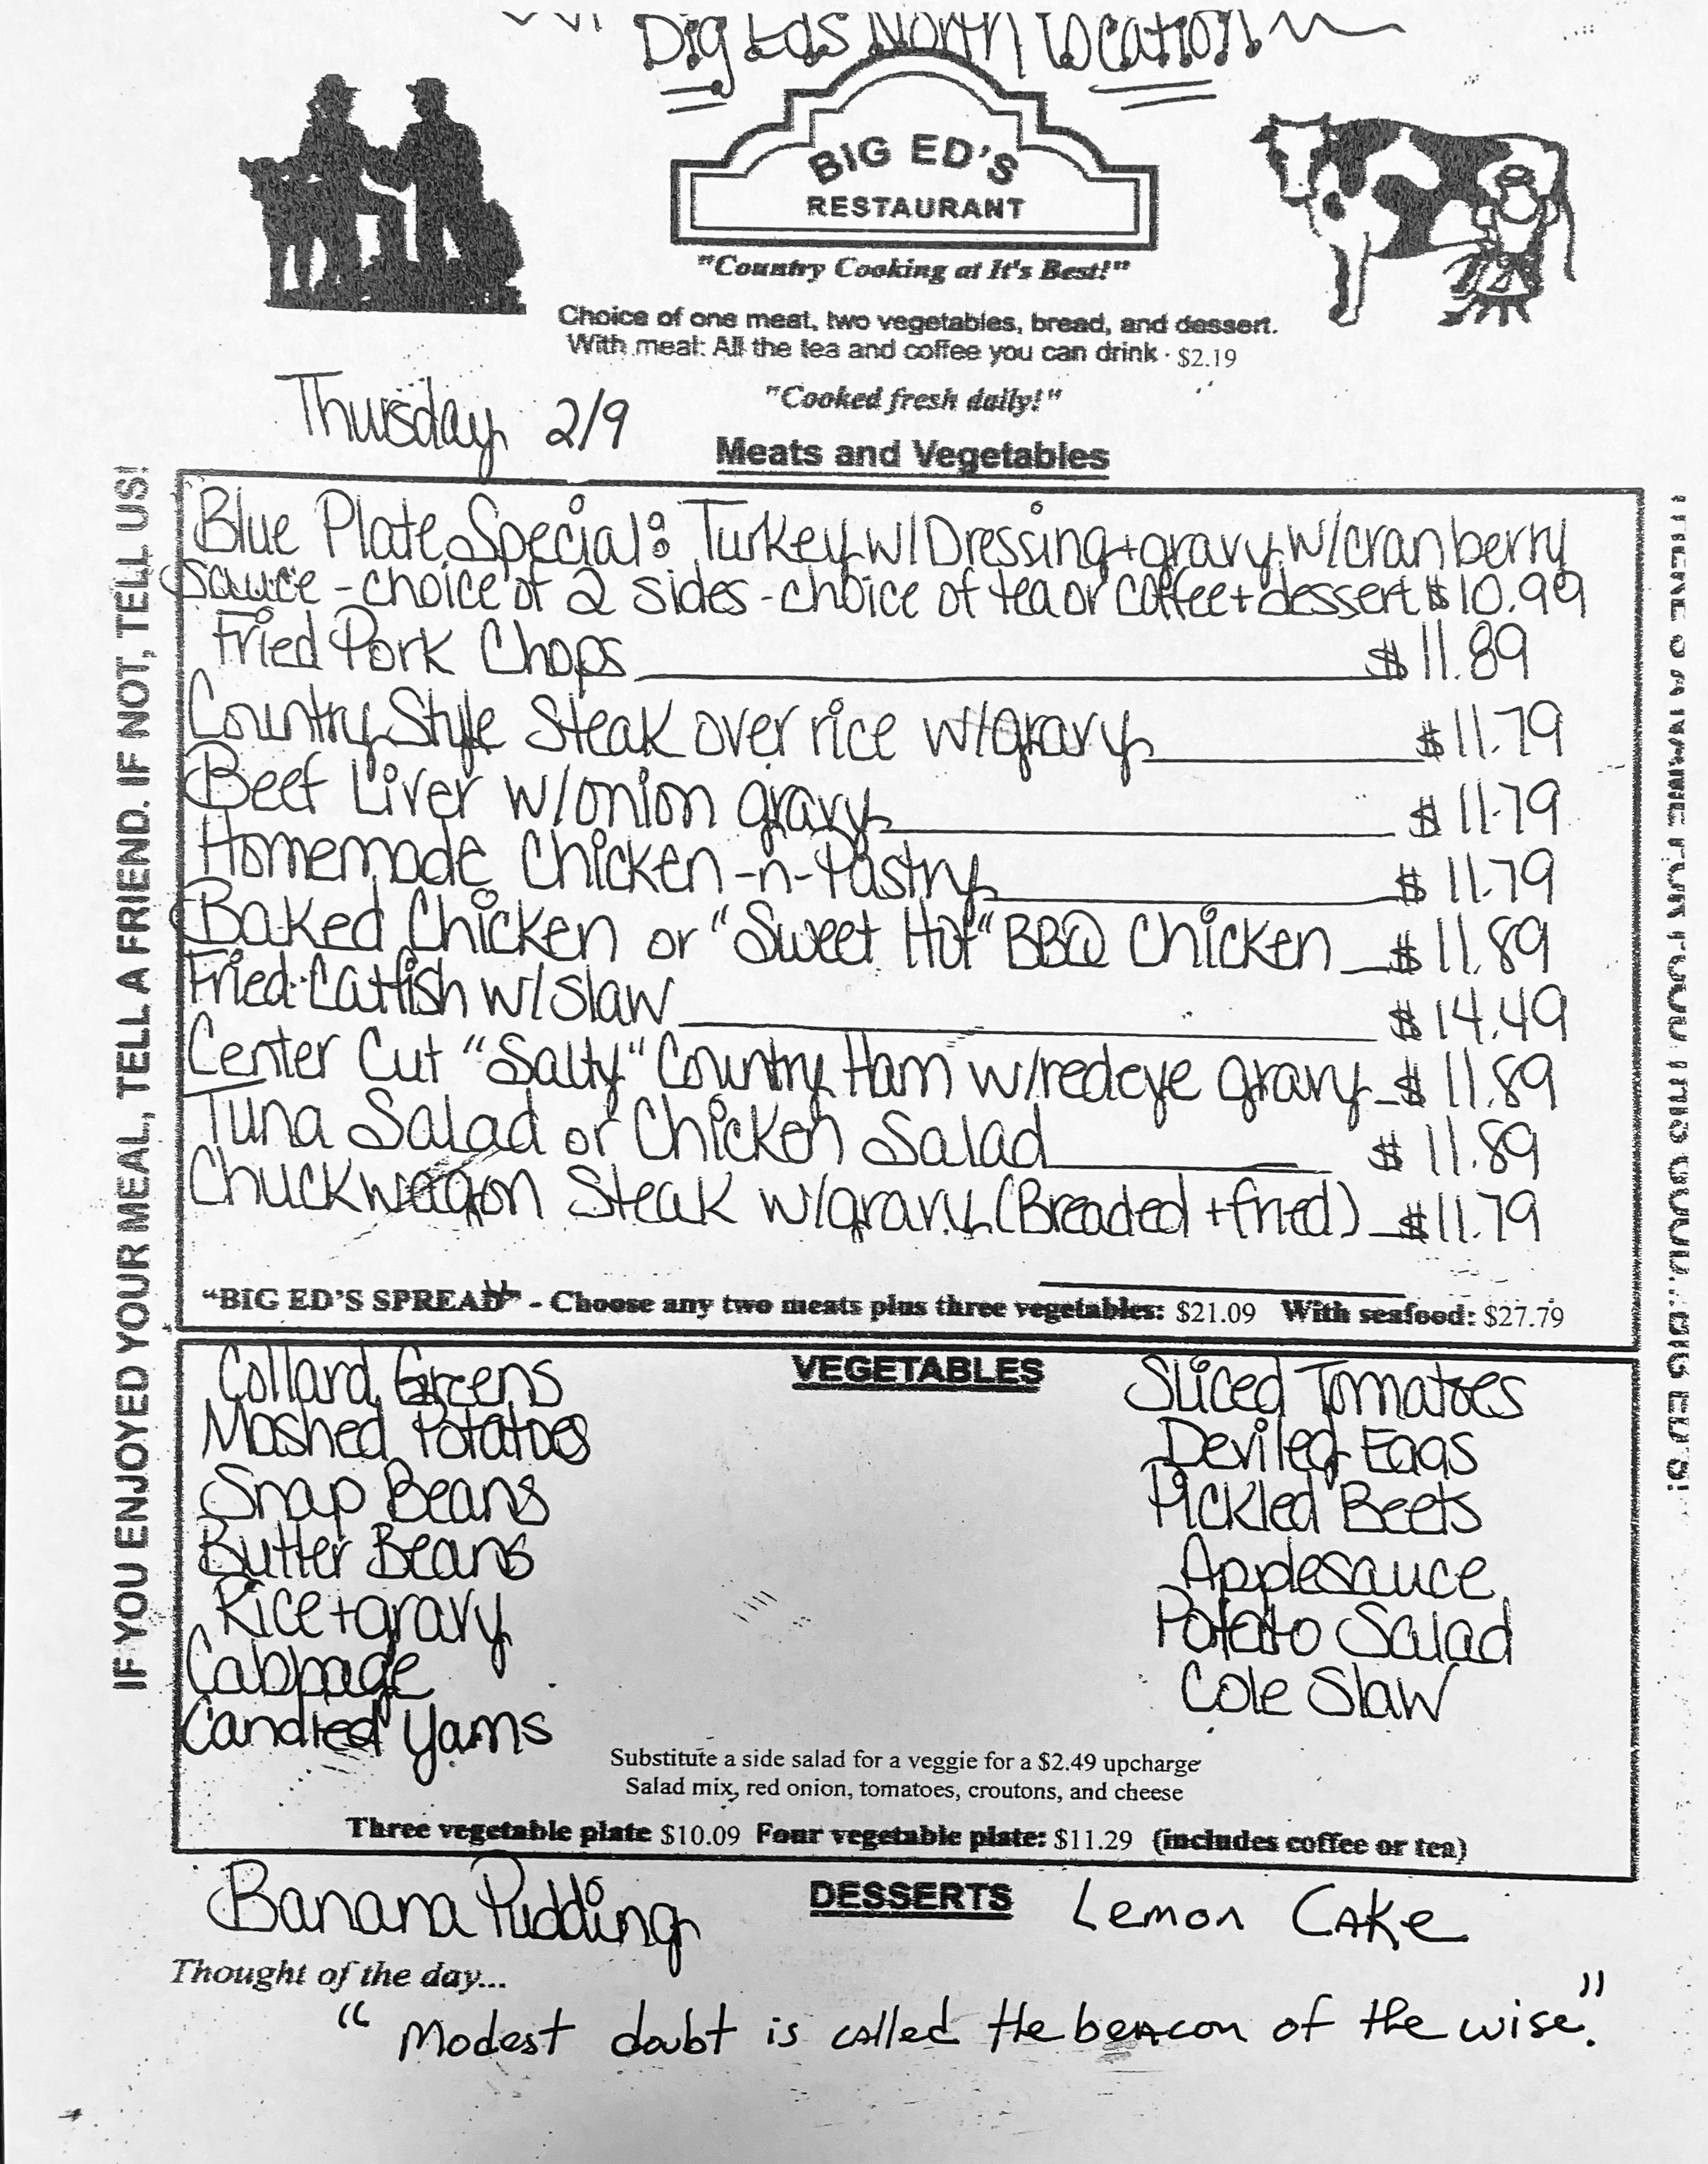 Big Eds North Location
BIG ED'S
RESTAURANT
"Country Cooking at It's Best!"
Choice of one meat, two vegetables, bread, and dessert.
With meal: All the tea and coffee you can drink · $2.19
"Cooked fresh daily!"
Thursday 2/9
Meats and Vegetables
IF YOU ENJOYED YOUR MEAL, TELL A FRIEND. IF NOT, TELL US!
Blue Plate Special: Turkey w/Dressing+gravy w/cranberry
sauce - choice of 2 sides - choice of tea or coffee + dessert $10.99
Fried Pork Chops $11.89
Country Style Steak over rice w/gravy $11.79
Beef Liver w/onion gravy $11.79
Homemade Chicken-n-Pastry $11.79
Baked Chicken or "Sweet Hot" BBQ Chicken $11.89
Fried Catfish w/slaw $14.49
Center Cut "Salty" Country Ham w/redeye gravy $11.89
Tuna Salad or Chicken Salad $11.89
Chuckwagon Steak w/gravy (Breaded + fried) $11.79
"BIG ED'S SPREAD" - Choose any two meats plus three vegetables: $21.09 With seafood: $27.79
VEGETABLES
Collard Greens
Mashed Potatoes
Snap Beans
Butter Beans
Rice + gravy
Cabbage
Candied Yams
Sliced Tomatoes
Deviled Eggs
Pickled Beets
Applesauce
Potato Salad
Cole Slaw
Substitute a side salad for a veggie for a $2.49 upcharge
Salad mix, red onion, tomatoes, croutons, and cheese
Three vegetable plate $10.09 Four vegetable plate: $11.29 (includes coffee or tea)
DESSERTS
Banana Pudding
Lemon Cake
Thought of the day...
"Modest doubt is called the beacon of the wise."